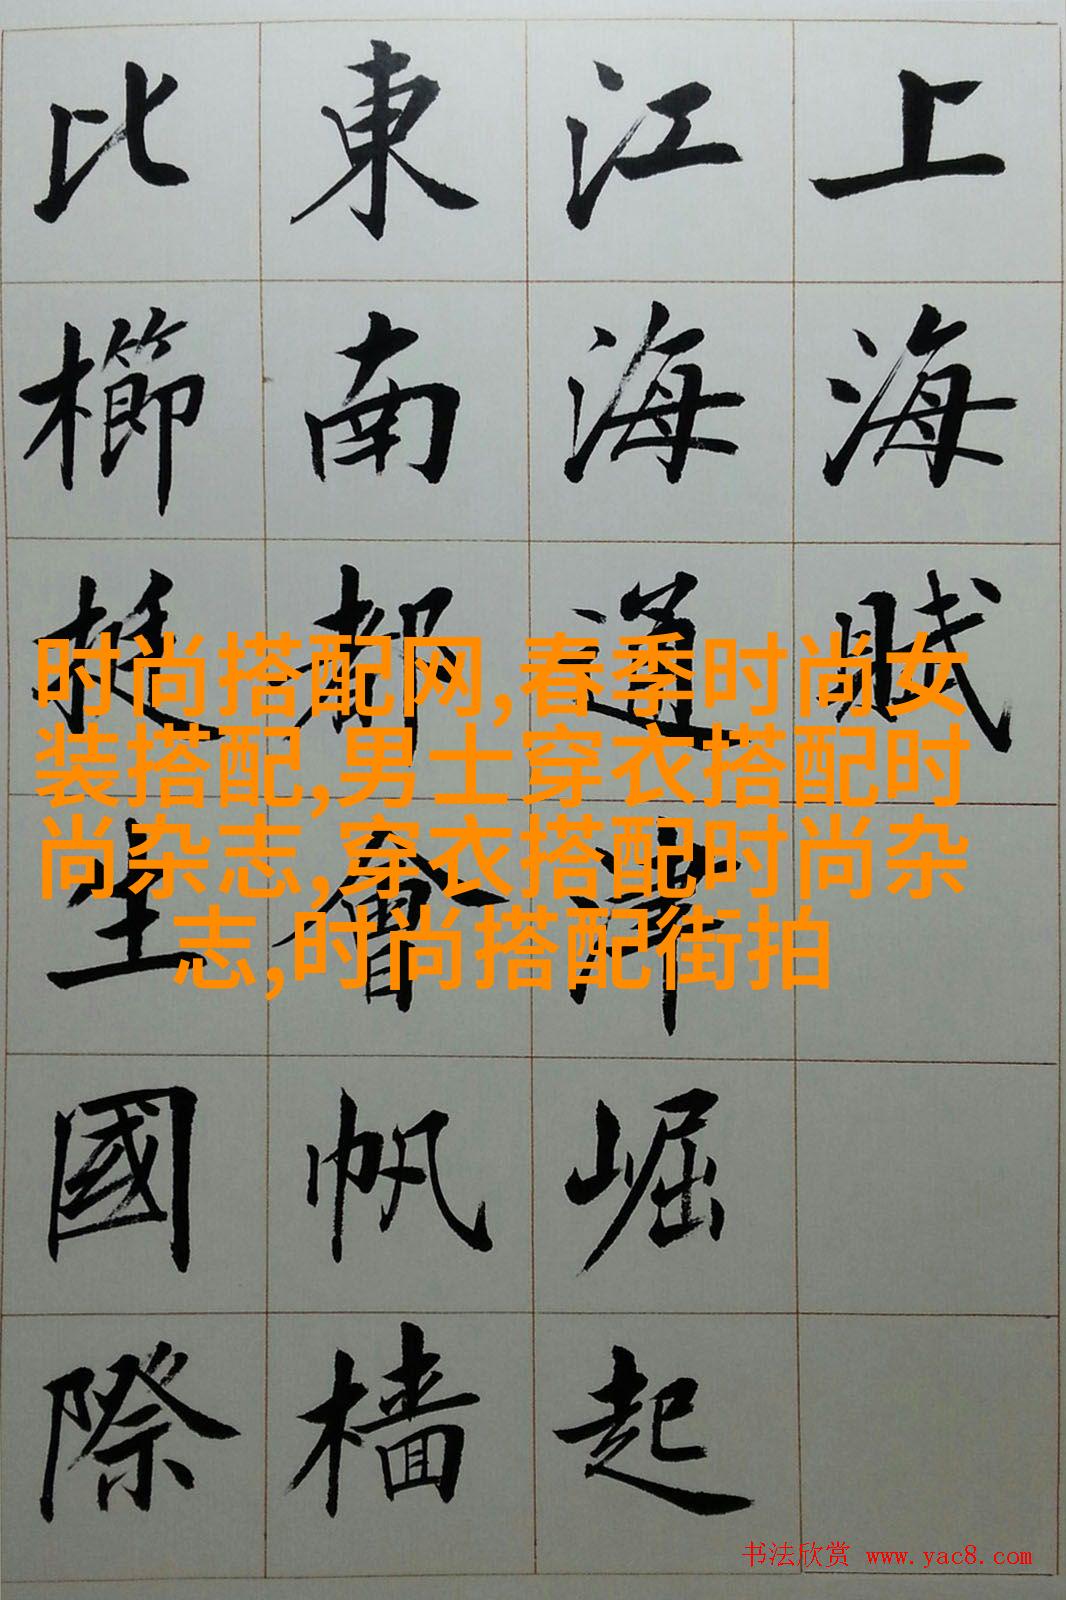 上海賦
江海通津崛起
東南都會帆檣
比櫛挺生國際
时尚搭配网,春季时尚女
装搭配,男士穿衣搭配时
尚杂志,穿衣搭配时尚杂
志,时尚搭配街拍
书法欣赏 www.yac8.com